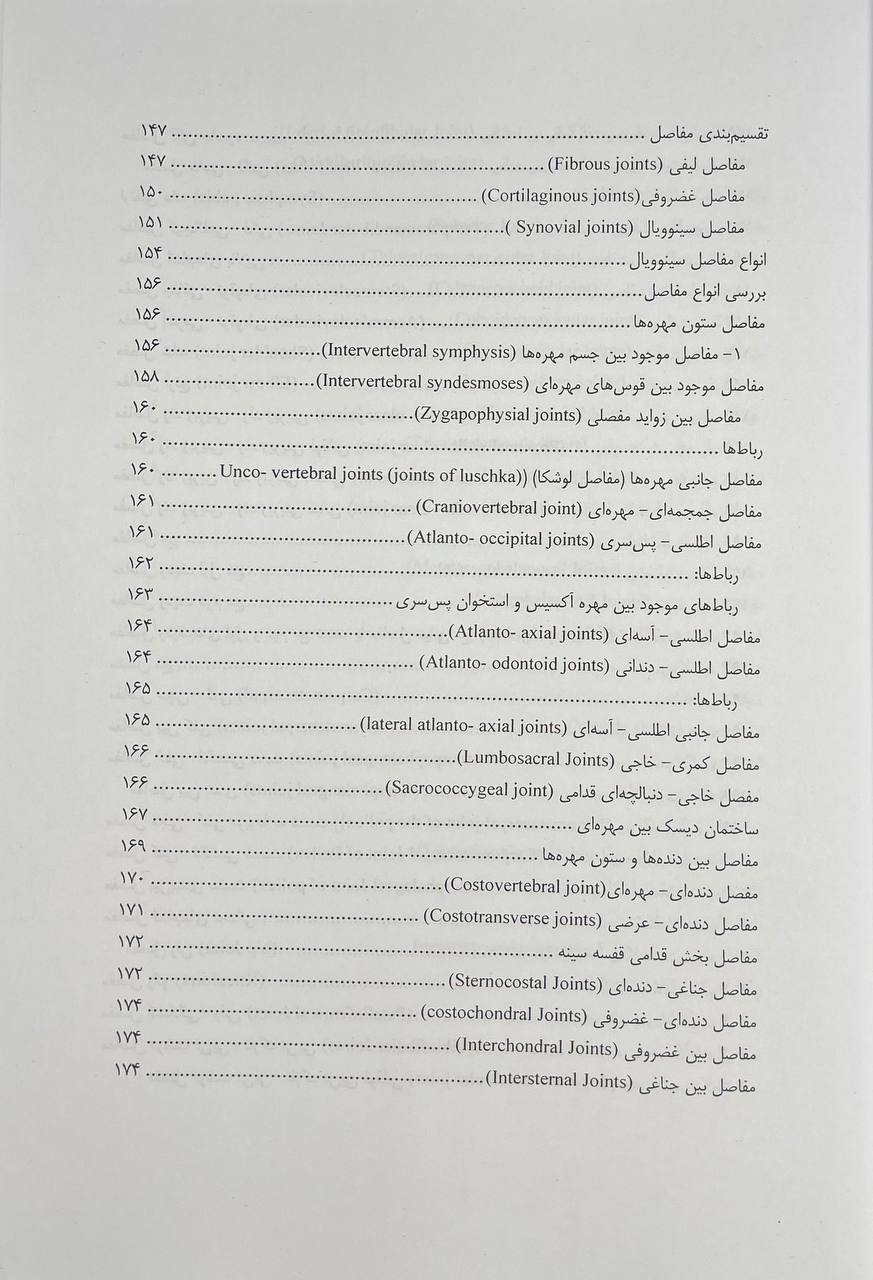 تقسیم‌بندی مفاصل ........................................................................................ ۱۴۷
مفاصل لیفی (Fibrous joints) ...................................................................... ۱۴۷
مفاصل غضروفی(Cortilaginous joints) ......................................................... ۱۵۰
مفاصل سینوویال (Synovial joints ).............................................................. ۱۵۱
انواع مفاصل سینوویال ..................................................................................... ۱۵۴
بررسی انواع مفاصل......................................................................................... ۱۵۶
مفاصل ستون مهره‌ها ...................................................................................... ۱۵۶
۱- مفاصل موجود بین جسم مهره‌ها (Intervertebral symphysis)............................. ۱۵۶
مفاصل موجود بین قوس‌های مهره‌ای (Intervertebral syndesmoses)............................ ۱۵۸
مفاصل بین زواید مفصلی (Zygapophysial joints).............................................. ۱۶۰
رباط‌ها ....................................................................................................... ۱۶۰
مفاصل جانبی مهره‌ها (مفاصل لوشکا) (Unco- vertebral joints (joints of luschka) .......... ۱۶۰
مفاصل جمجمه‌ای- مهره‌ای (Craniovertebral joint) .................................................... ۱۶۱
مفاصل اطلسی- پس‌سری (Atlanto- occipital joints).............................................. ۱۶۱
رباط‌ها: ................................................................................................... ۱۶۲
رباط‌های موجود بین مهره آکسیس و استخوان پس‌سری ............................................ ۱۶۳
مفاصل اطلسی- آسه‌ای (Atlanto- axial joints)...................................................... ۱۶۴
مفاصل اطلسی- دندانی (Atlanto- odontoid joints) ................................................ ۱۶۴
رباط‌ها: ................................................................................................... ۱۶۵
مفاصل جانبی اطلسی- آسه‌ای (lateral atlanto- axial joints) ..................................... ۱۶۵
مفاصل کمری- خاجی (Lumbosacral Joints)........................................................ ۱۶۶
مفصل خاجی- دنبالچه‌ای قدامی (Sacrococcygeal joint) .......................................... ۱۶۶
ساختمان دیسک بین مهره‌ای .............................................................................. ۱۶۷
مفاصل بین دنده‌ها و ستون مهره‌ها ........................................................................ ۱۶۹
مفصل دنده‌ای- مهره‌ای(Costovertebral joint) ...................................................... ۱۷۰
مفاصل دنده‌ای- عرضی (Costotransverse joints) .................................................. ۱۷۱
مفاصل بخش قدامی قفسه سینه ........................................................................... ۱۷۲
مفاصل جناغی- دنده‌ای (Sternocostal Joints) ...................................................... ۱۷۲
مفاصل دنده‌ای- غضروفی (costochondral Joints) .................................................. ۱۷۴
مفاصل بین غضروفی (Interchondral Joints) ......................................................... ۱۷۴
مفاصل بین جناغی (Intersternal Joints)............................................................... ۱۷۴